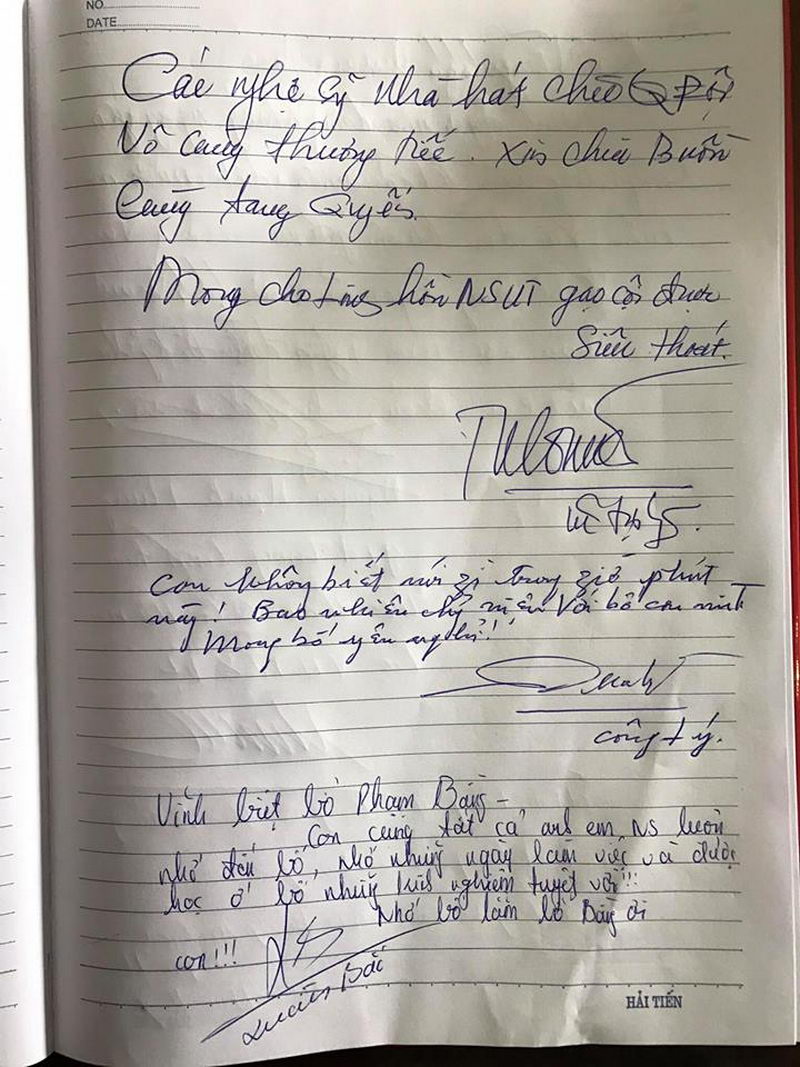 NO.
DATE
Các nghệ sỹ nhà hát chèo Q Đội
Vô cùng thương tiếc. Xin chia Buồn
Cùng tang Quyến.
Mong cho hồn NSUT gạo cội được
Siêu thoát.
Con không biết nói gì trong giờ phút
này! Bao nhiêu kỷ niệm Với bố con mình
Mong bố yên nghỉ!!
công lý.
Vĩnh biệt bố Phạm Bằng -
Con cùng tất cả anh em NS luôn
nhớ đến bố, nhớ những ngày làm việc và được
học ở bố những kinh nghiệm tuyệt vời!!!
Nhớ bố lắm bố Bằng ơi
con!!!
Xuân Bắc
HẢI TIẾN